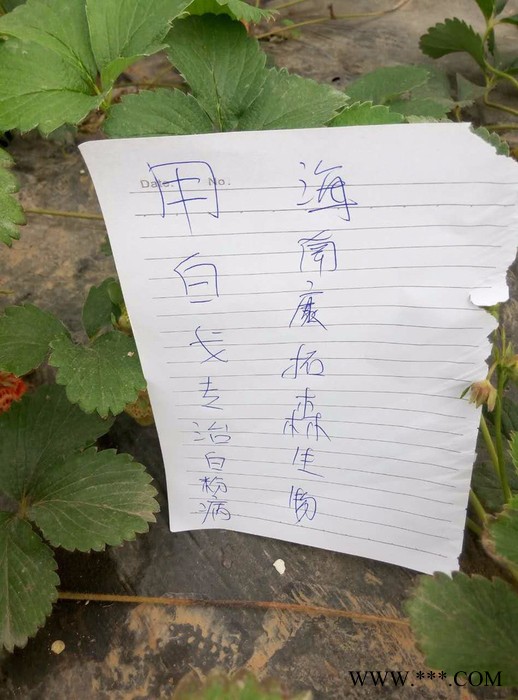 Date. No.
海南康拓森生物
用白戈专治白粉病
WWW.***.COM